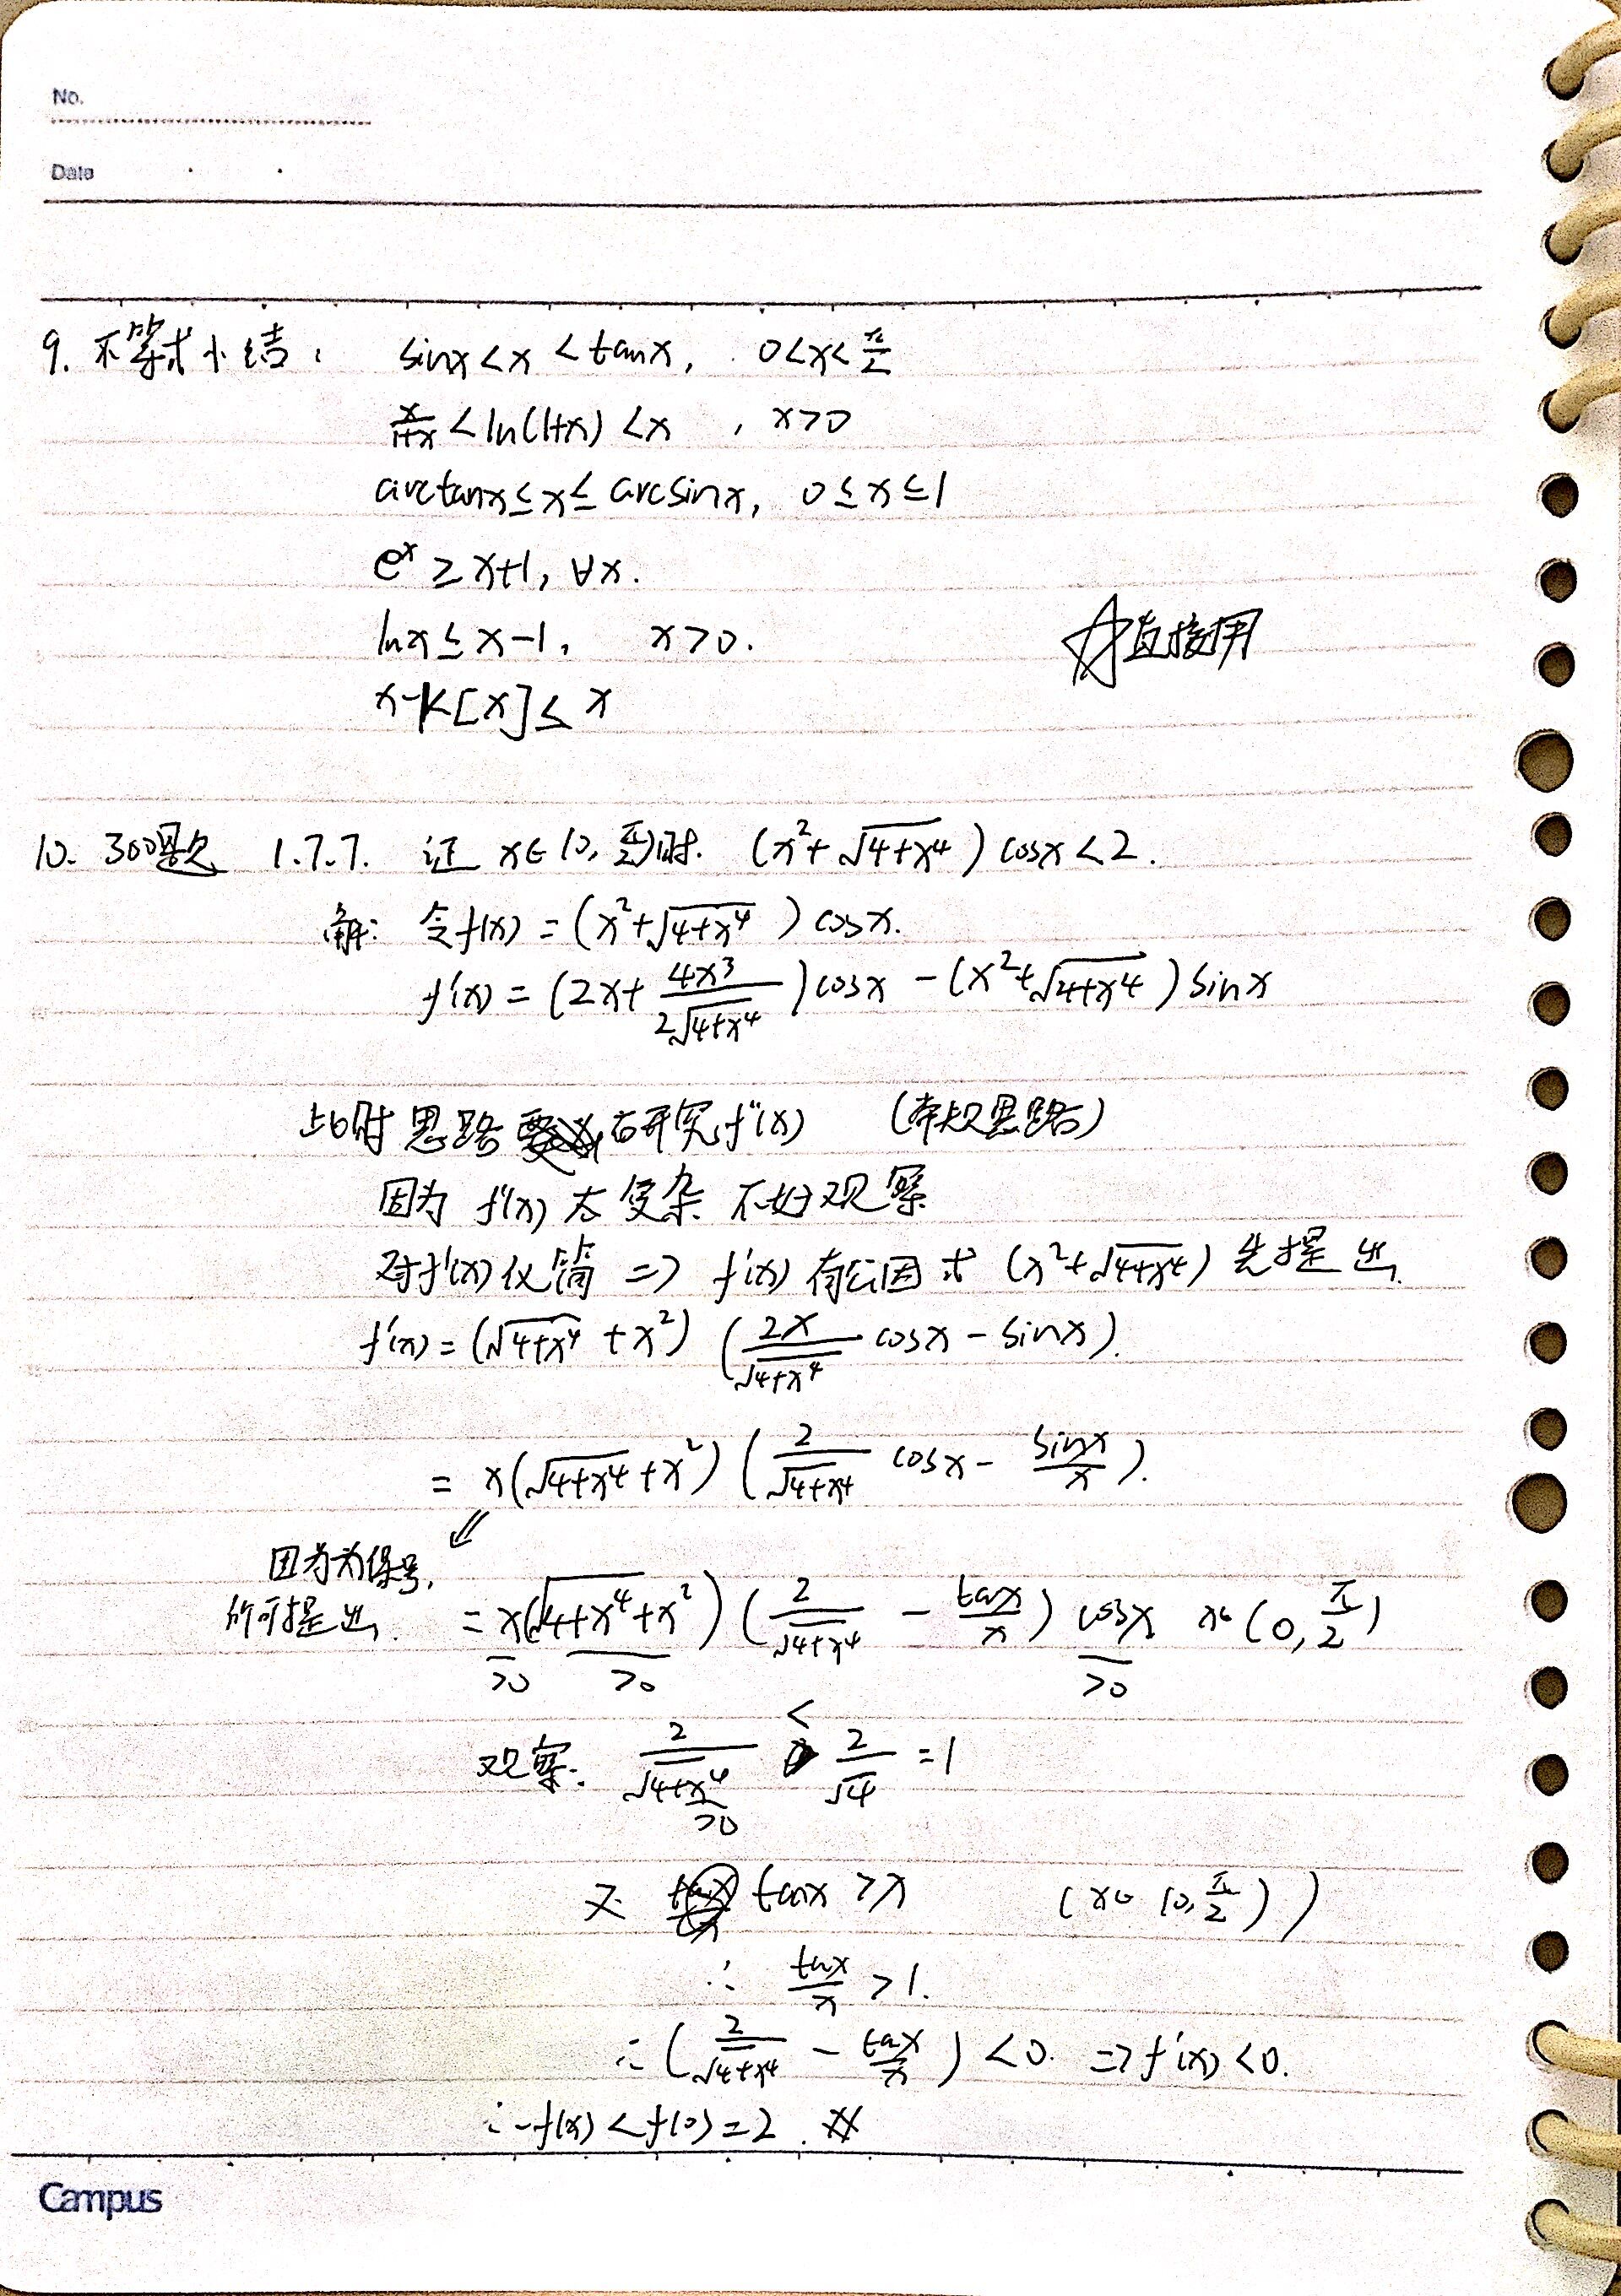 No.
Date
9. 不等式小结: sinx<x<tanx, 0<x<π/2
x/(1+x) < ln(1+x) < x , x>0
arctanx≤x≤arcsinx, 0≤x≤1
e^x ≥ x+1, ∀x.
lnx ≤ x-1, x>0.
☆直接用
x-1<[x]≤x
10. 300题 1.7.7. 证 x∈(0, π/2)时. (x²+√(4+x⁴)) cosx<2.
解: 令f(x) = (x²+√(4+x⁴)) cosx.
f'(x) = (2x+ 4x³/(2√(4+x⁴))) cosx - (x²+√(4+x⁴)) sinx
此时思路 有研究f''(x) (常规思路)
因为 f'(x) 太复杂 不好观察
对f'(x)化简 => f'(x) 有公因式 (x²+√(4+x⁴)) 先提出.
f'(x) = (√(4+x⁴) + x²) (2x/√(4+x⁴) cosx - sinx).
= x(√(4+x⁴)+x²) (2/√(4+x⁴) cosx - sinx/x).
⇙
因为为保号,
所可提出. = x(√(4+x⁴)+x²) (2/√(4+x⁴) - tanx/x) cosx x∈(0, π/2)
>0 >0 >0
观察: 2/√(4+x⁴) < 2/√4 = 1
>0
又 tanx >x (x∈(0, π/2))
∴ tanx/x >1.
∴ (2/√(4+x⁴) - tanx/x) <0. => f'(x) <0.
∴ f(x) < f(0) = 2. #
Campus